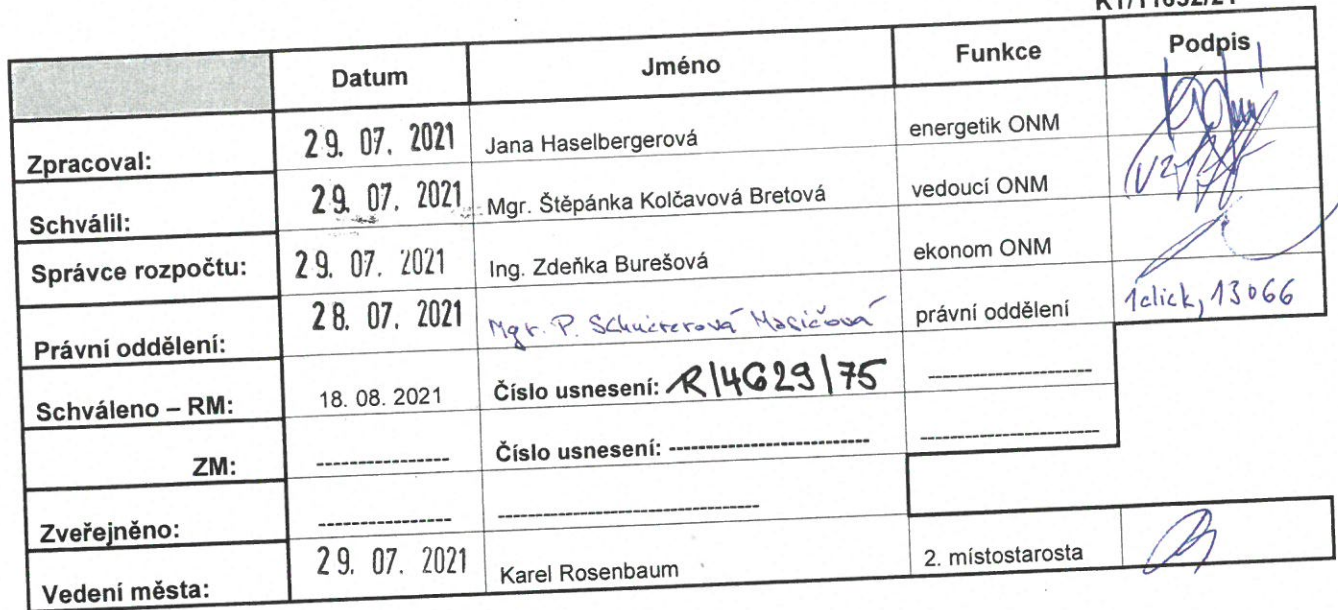 Datum Jméno Funkce Podpis
Zpracoval: 29. 07. 2021 Jana Haselbergerová energetik ONM
Schválil: 29. 07. 2021 Mgr. Štěpánka Kolčavová Bretová vedoucí ONM
Správce rozpočtu: 29. 07. 2021 Ing. Zdeňka Burešová ekonom ONM
Právní oddělení: 28. 07. 2021 Mgr. P. právní oddělení 1click, 13066
Schváleno – RM: 18. 08. 2021 Číslo usnesení: R/4629/75 ----------------------
ZM: ---------------- Číslo usnesení: --------------------------- ------------------------
Zveřejněno: ---------------- -----------------------------------
Vedení města: 29. 07. 2021 Karel Rosenbaum 2. místostarosta